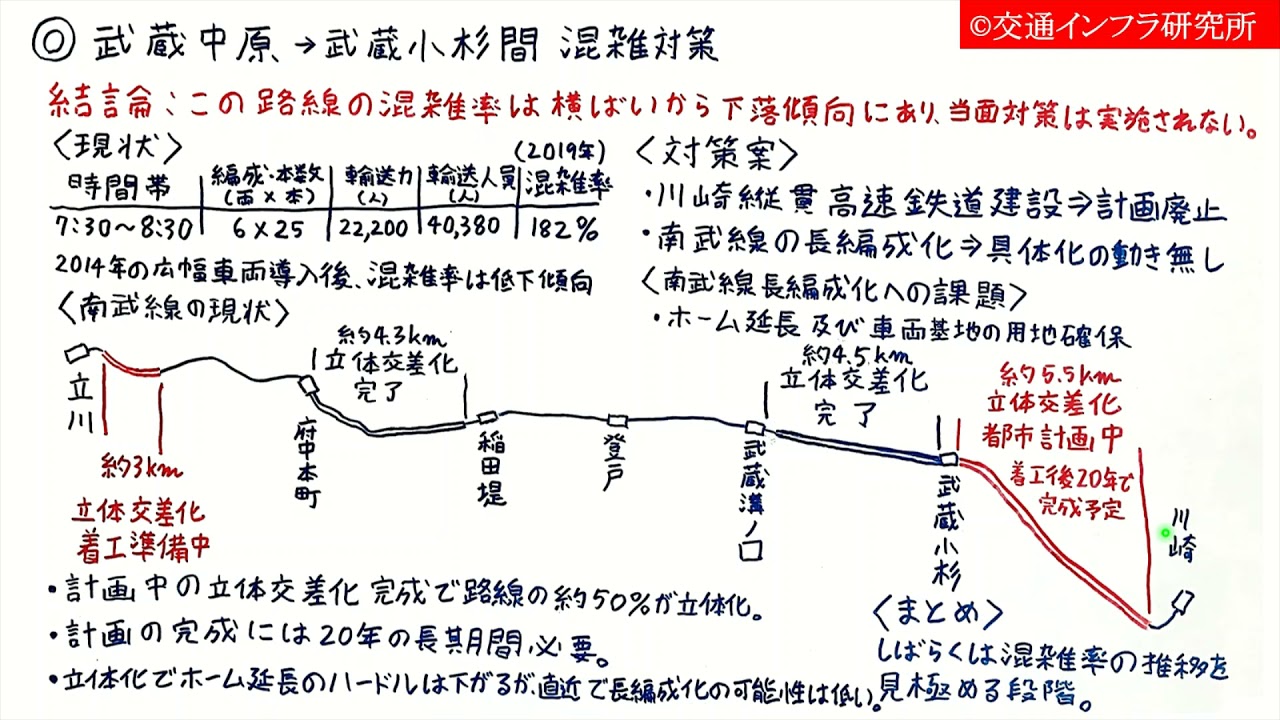 ©交通インフラ研究所
◎ 武蔵中原→武蔵小杉間 混雑対策
結論:この路線の混雑率は横ばいから下落傾向にあり、当面対策は実施されない。
〈現状〉
(2019年)
時間帯 編成・本数(両×本) 輸送力(人) 輸送人員(人) 混雑率
7:30〜8:30 6×25 22,200 40,380 182%
2014年の広幅車両導入後、混雑率は低下傾向
〈対策案〉
・川崎縦貫高速鉄道建設⇒計画廃止
・南武線の長編成化⇒具体化の動き無し
〈南武線長編成化への課題〉
・ホーム延長及び車両基地の用地確保
〈南武線の現状〉
約4.3km
立体交差化
完了
約4.5km
立体交差化
完了
約5.5km
立体交差化
都市計画中
着工後20年で
完成予定
立川
府中本町
稲田堤
登戸
武蔵溝ノ口
武蔵小杉
川崎
約3km
立体交差化
着工準備中
・計画中の立体交差化完成で路線の約50%が立体化。
・計画の完成には20年の長期間必要。
・立体化でホーム延長のハードルは下がるが、直近で長編成化の可能性は低い。
〈まとめ〉
しばらくは混雑率の推移を
見極める段階。